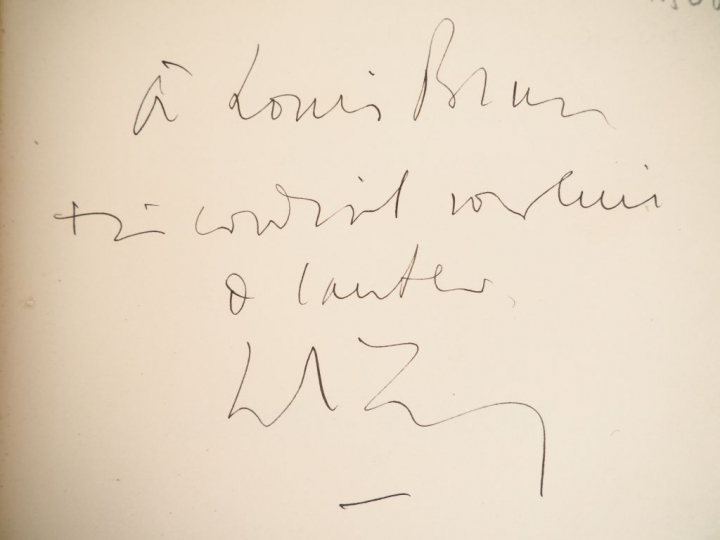 à Louis Brun
très cordial souvenir
de l'auteur